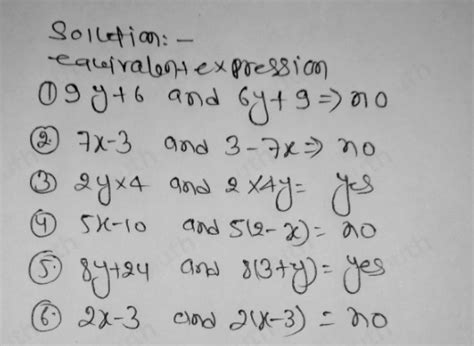 Solution:-
equivalent expression
① 9y+6 and 6y+9 => no
② 7x-3 and 3-7x => no
③ 2y×4 and 2×4y= yes
④ 5x-10 and 5(2-x)= no
⑤. 8y+24 and 8(3+y)= yes
⑥. 2x-3 and 2(x-3) = no